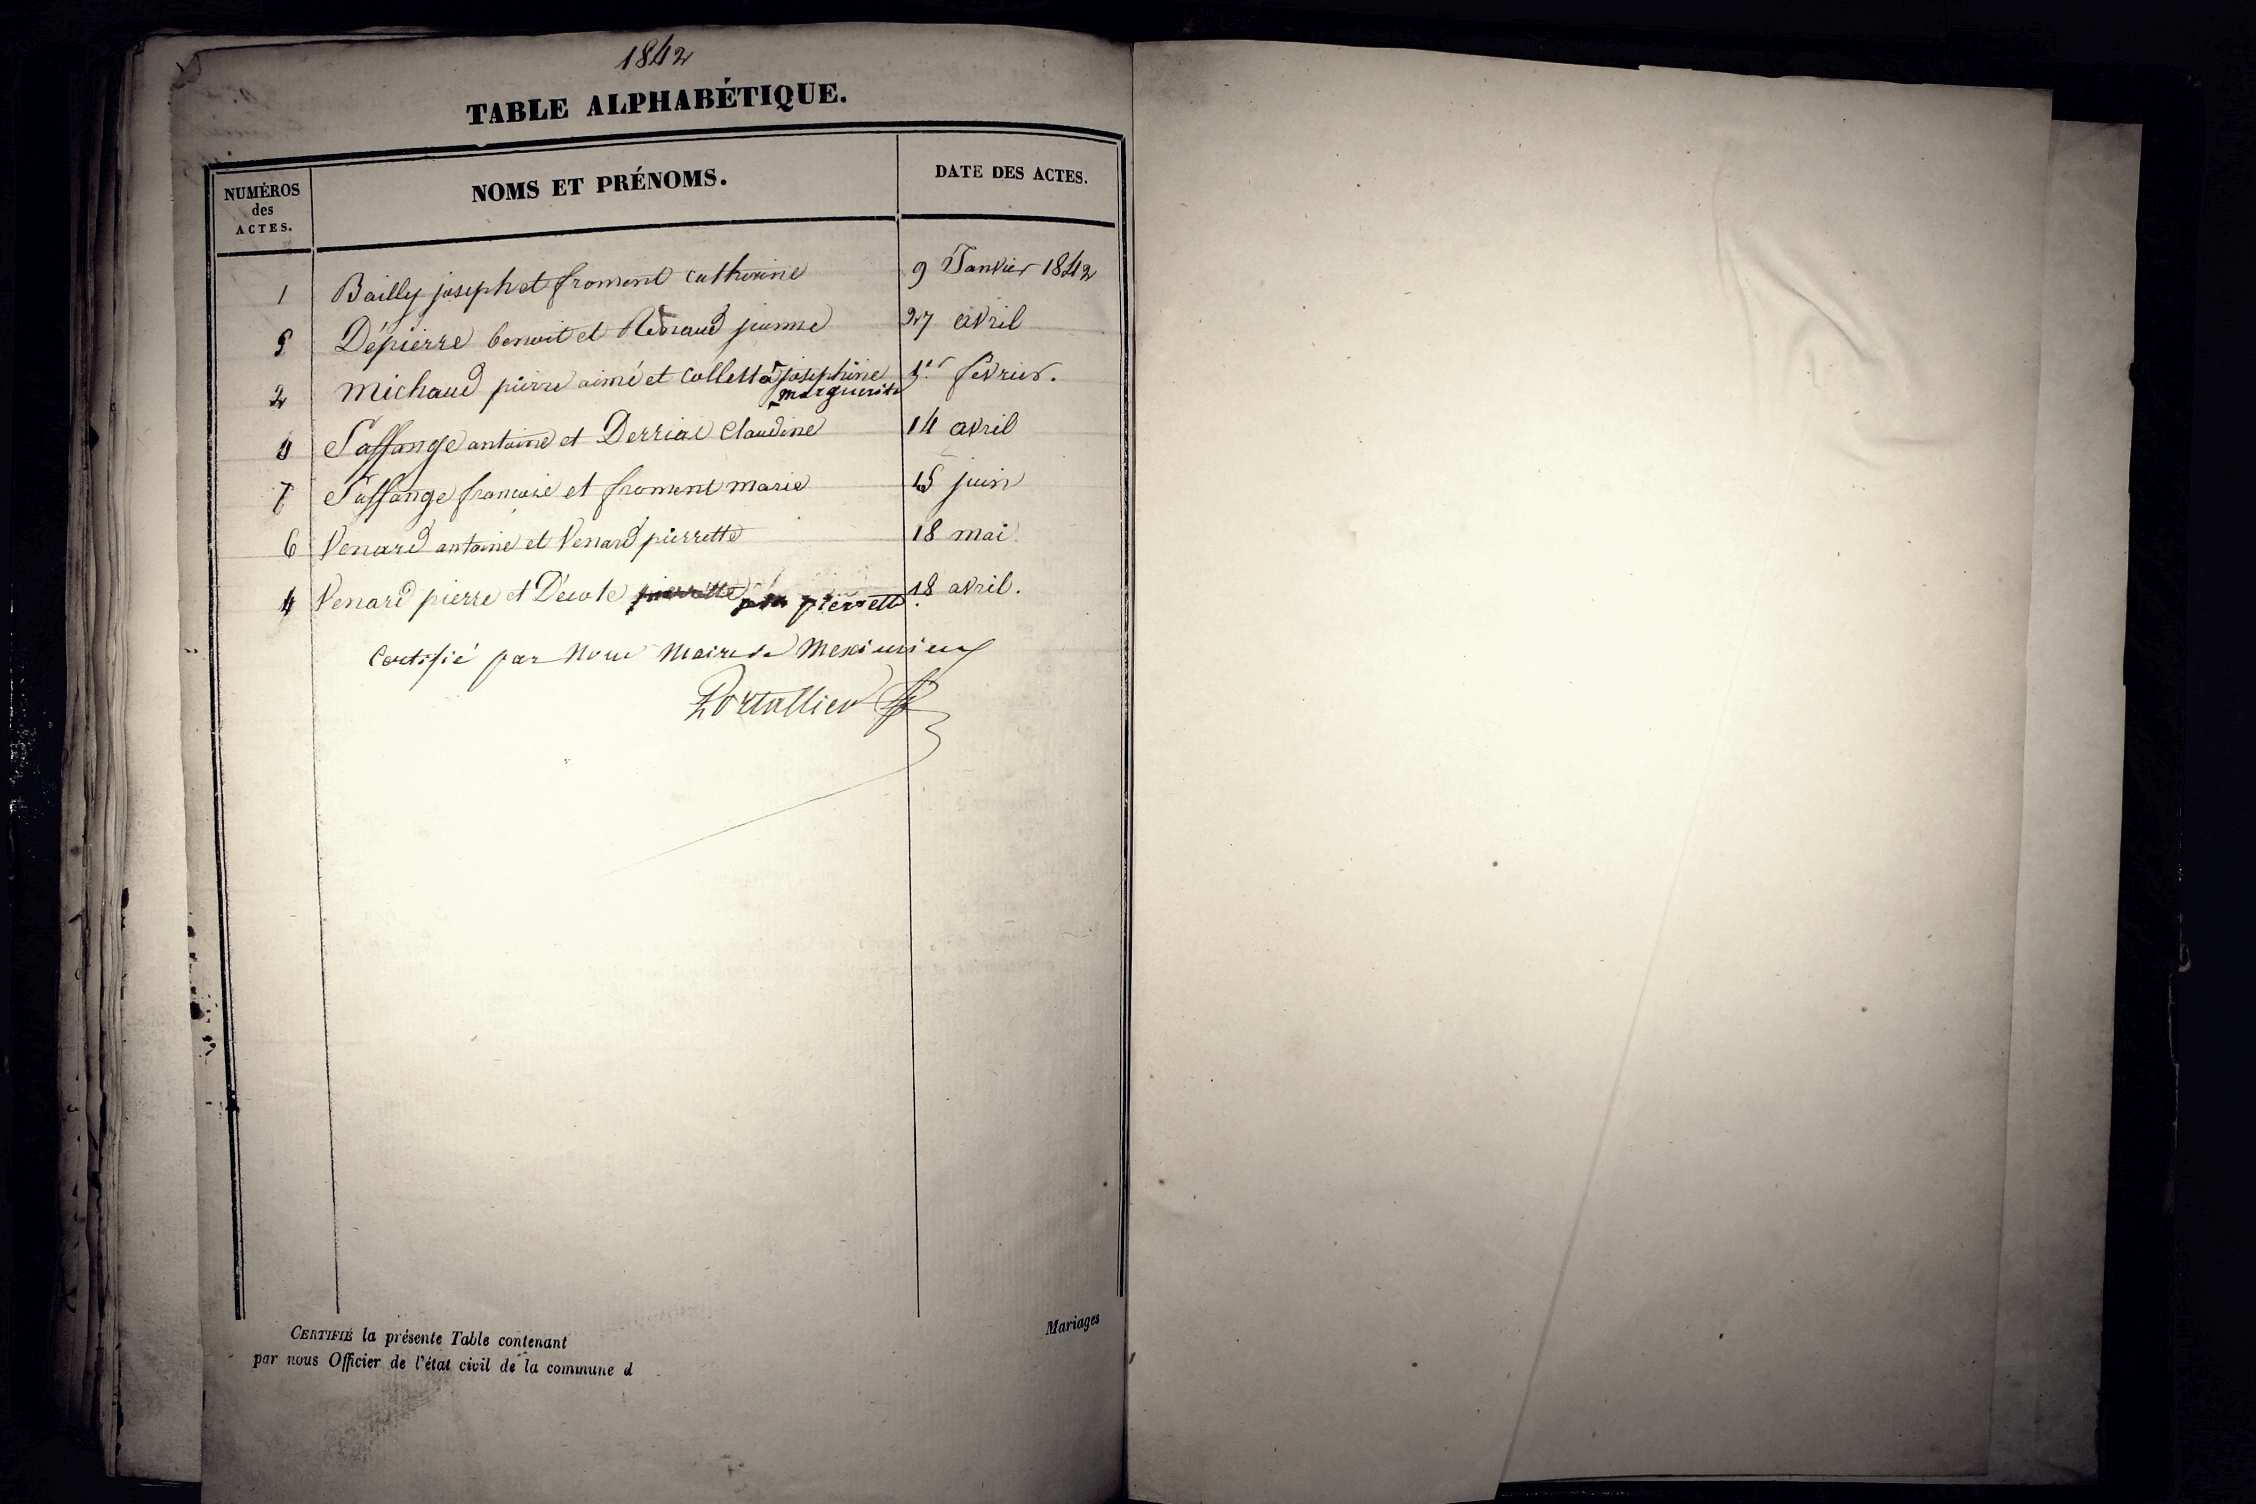 1842
TABLE ALPHABÉTIQUE.
NUMÉROS des ACTES.
NOMS ET PRÉNOMS.
DATE DES ACTES.
1 Bailly joseph et froment catherine 9 Janvier 1842
5 Dépierre benoit et Renaud jeanne 27 avril
2 Michaud pierre aimé et Collett josephine 1er fevrier.
marguerite
Saffange antoine et Derriac Claudine 14 avril
7 Saffange francoise et froment marie 15 juin
6 Venard antoine et Venard pierrette 18 mai
4 Venard pierre et Décote pierrette pierrette 18 avril.
Certifié par Nous Maire de Meximieux
Portallier
CERTIFIÉ la présente Table contenant Mariages
par nous Officier de l'état civil de la commune d